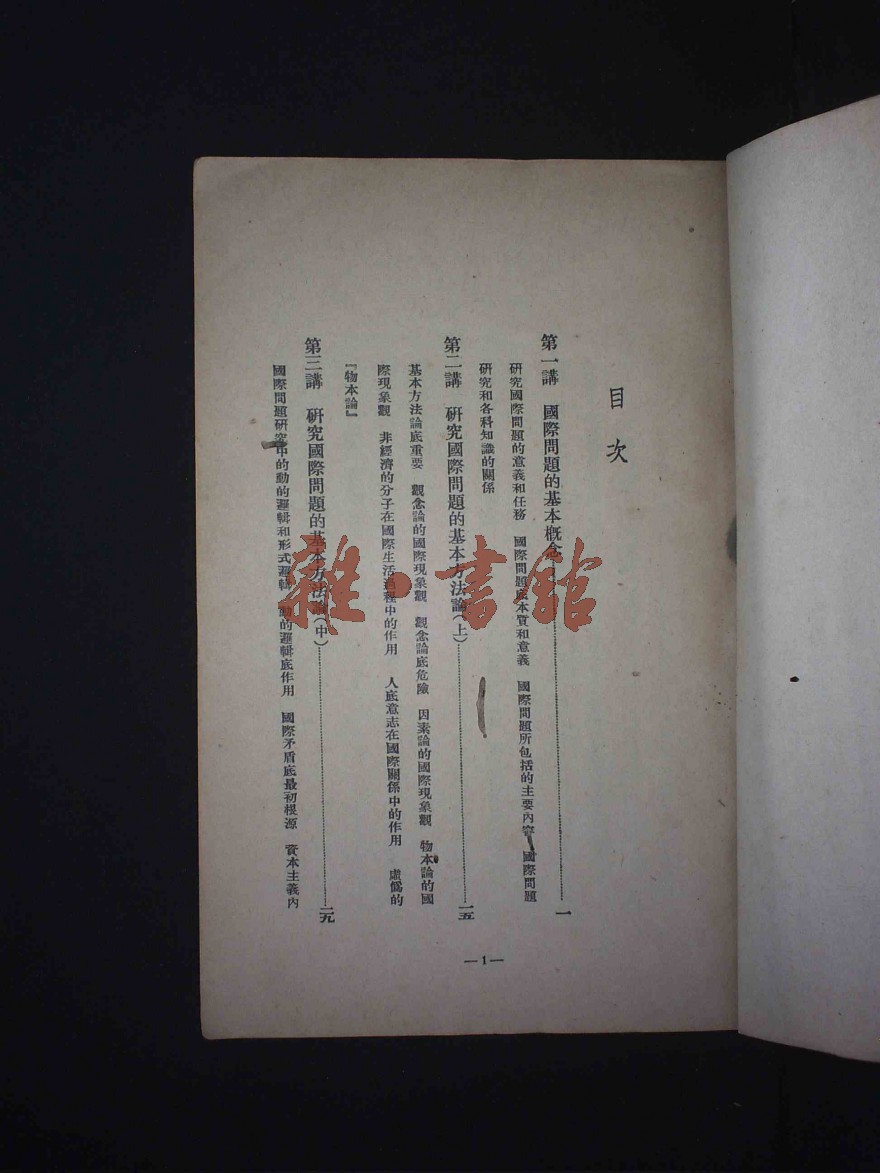 目次
第一講　國際問題的基本概念……一
研究國際問題的意義和任務　國際問題底本質和意義　國際問題所包括的主要內容　國際問題
研究和各科知識的關係
第二講　研究國際問題的基本方法論（上）……一五
基本方法論底重要　觀念論的國際現象觀　觀念論底危險　因素論的國際現象觀　物本論的國
際現象觀　非經濟的分子在國際生活過程中的作用　人底意志在國際關係中的作用　虛僞的
『物本論』
第三講　研究國際問題的基本方法論（中）……二九
國際問題研究中的動的邏輯和形式邏輯　動的邏輯底作用　國際矛盾底最初根源　資本主義內
—1—
雜·書館